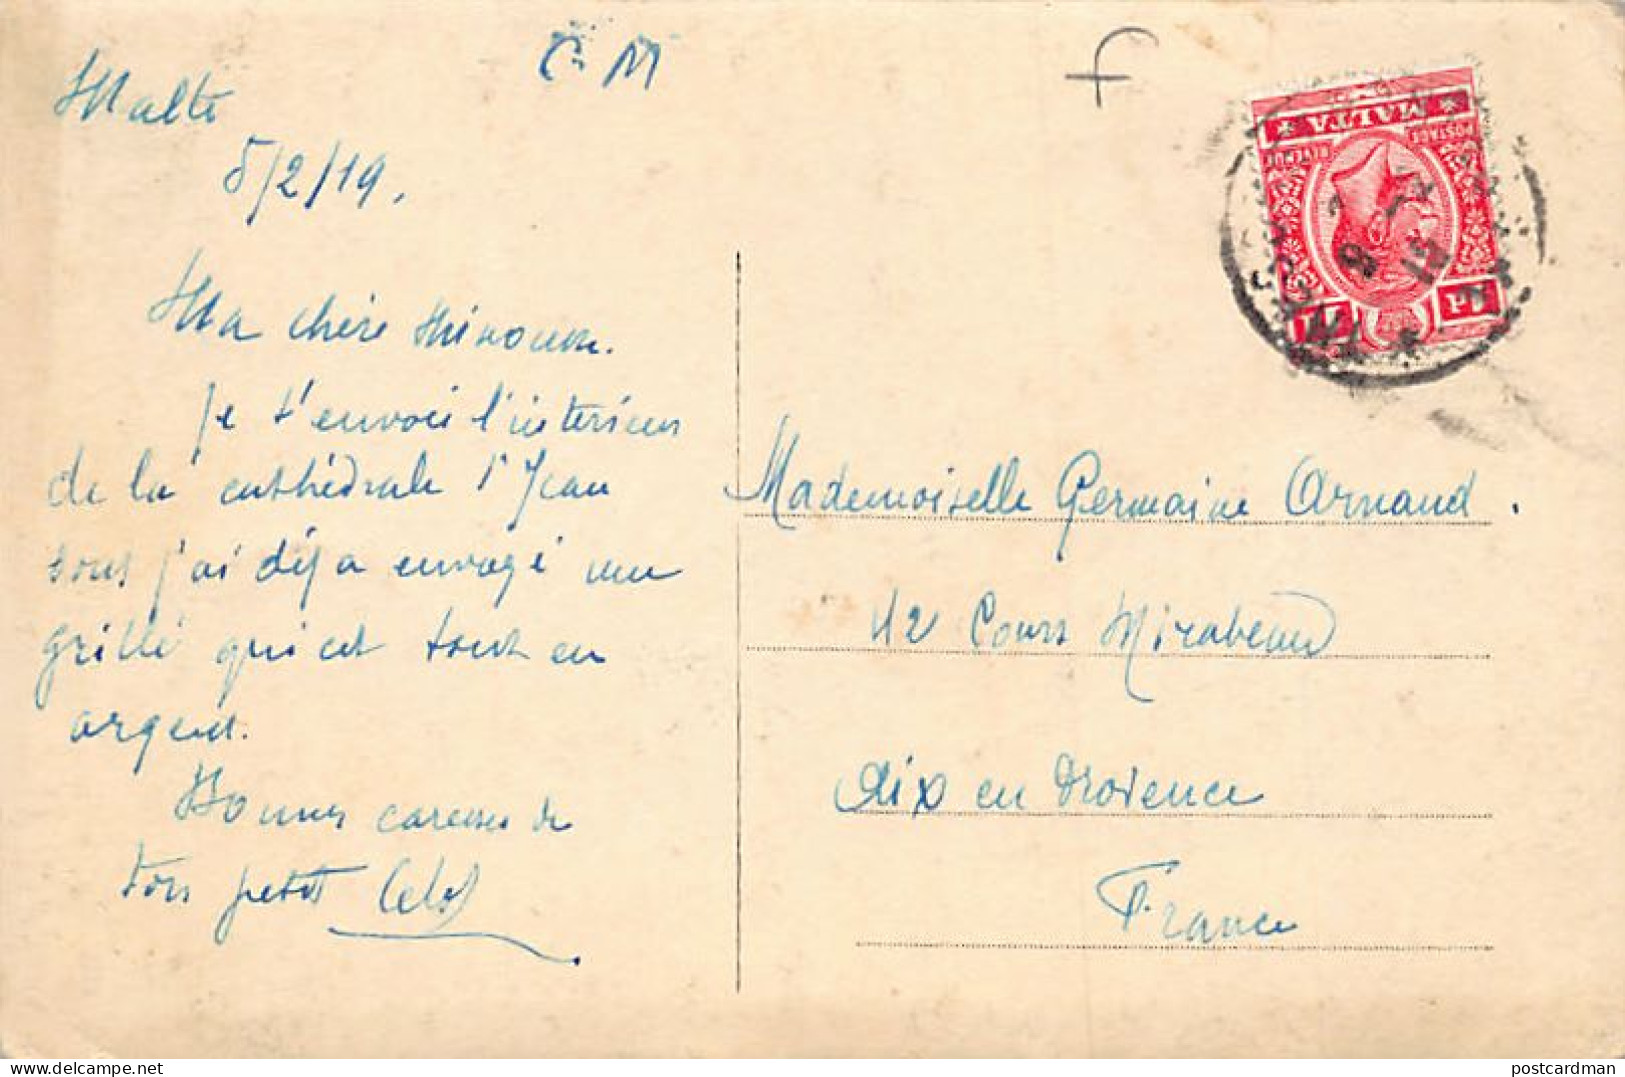 C. M
f
Malte
5/2/19.
Ma chère
Je t'envoi l'interieur
de la cathédrale St Jean
dont j'ai déja envoyé une
grille qui est tout en
argent.
Bonnes caresses de
ton petit
MALTA
POSTAGE
REVENUE
1d
Mademoiselle Germaine Arnaud.
42 Cours Mirabeau
Aix en Provence
France
delcampe.net
postcardman